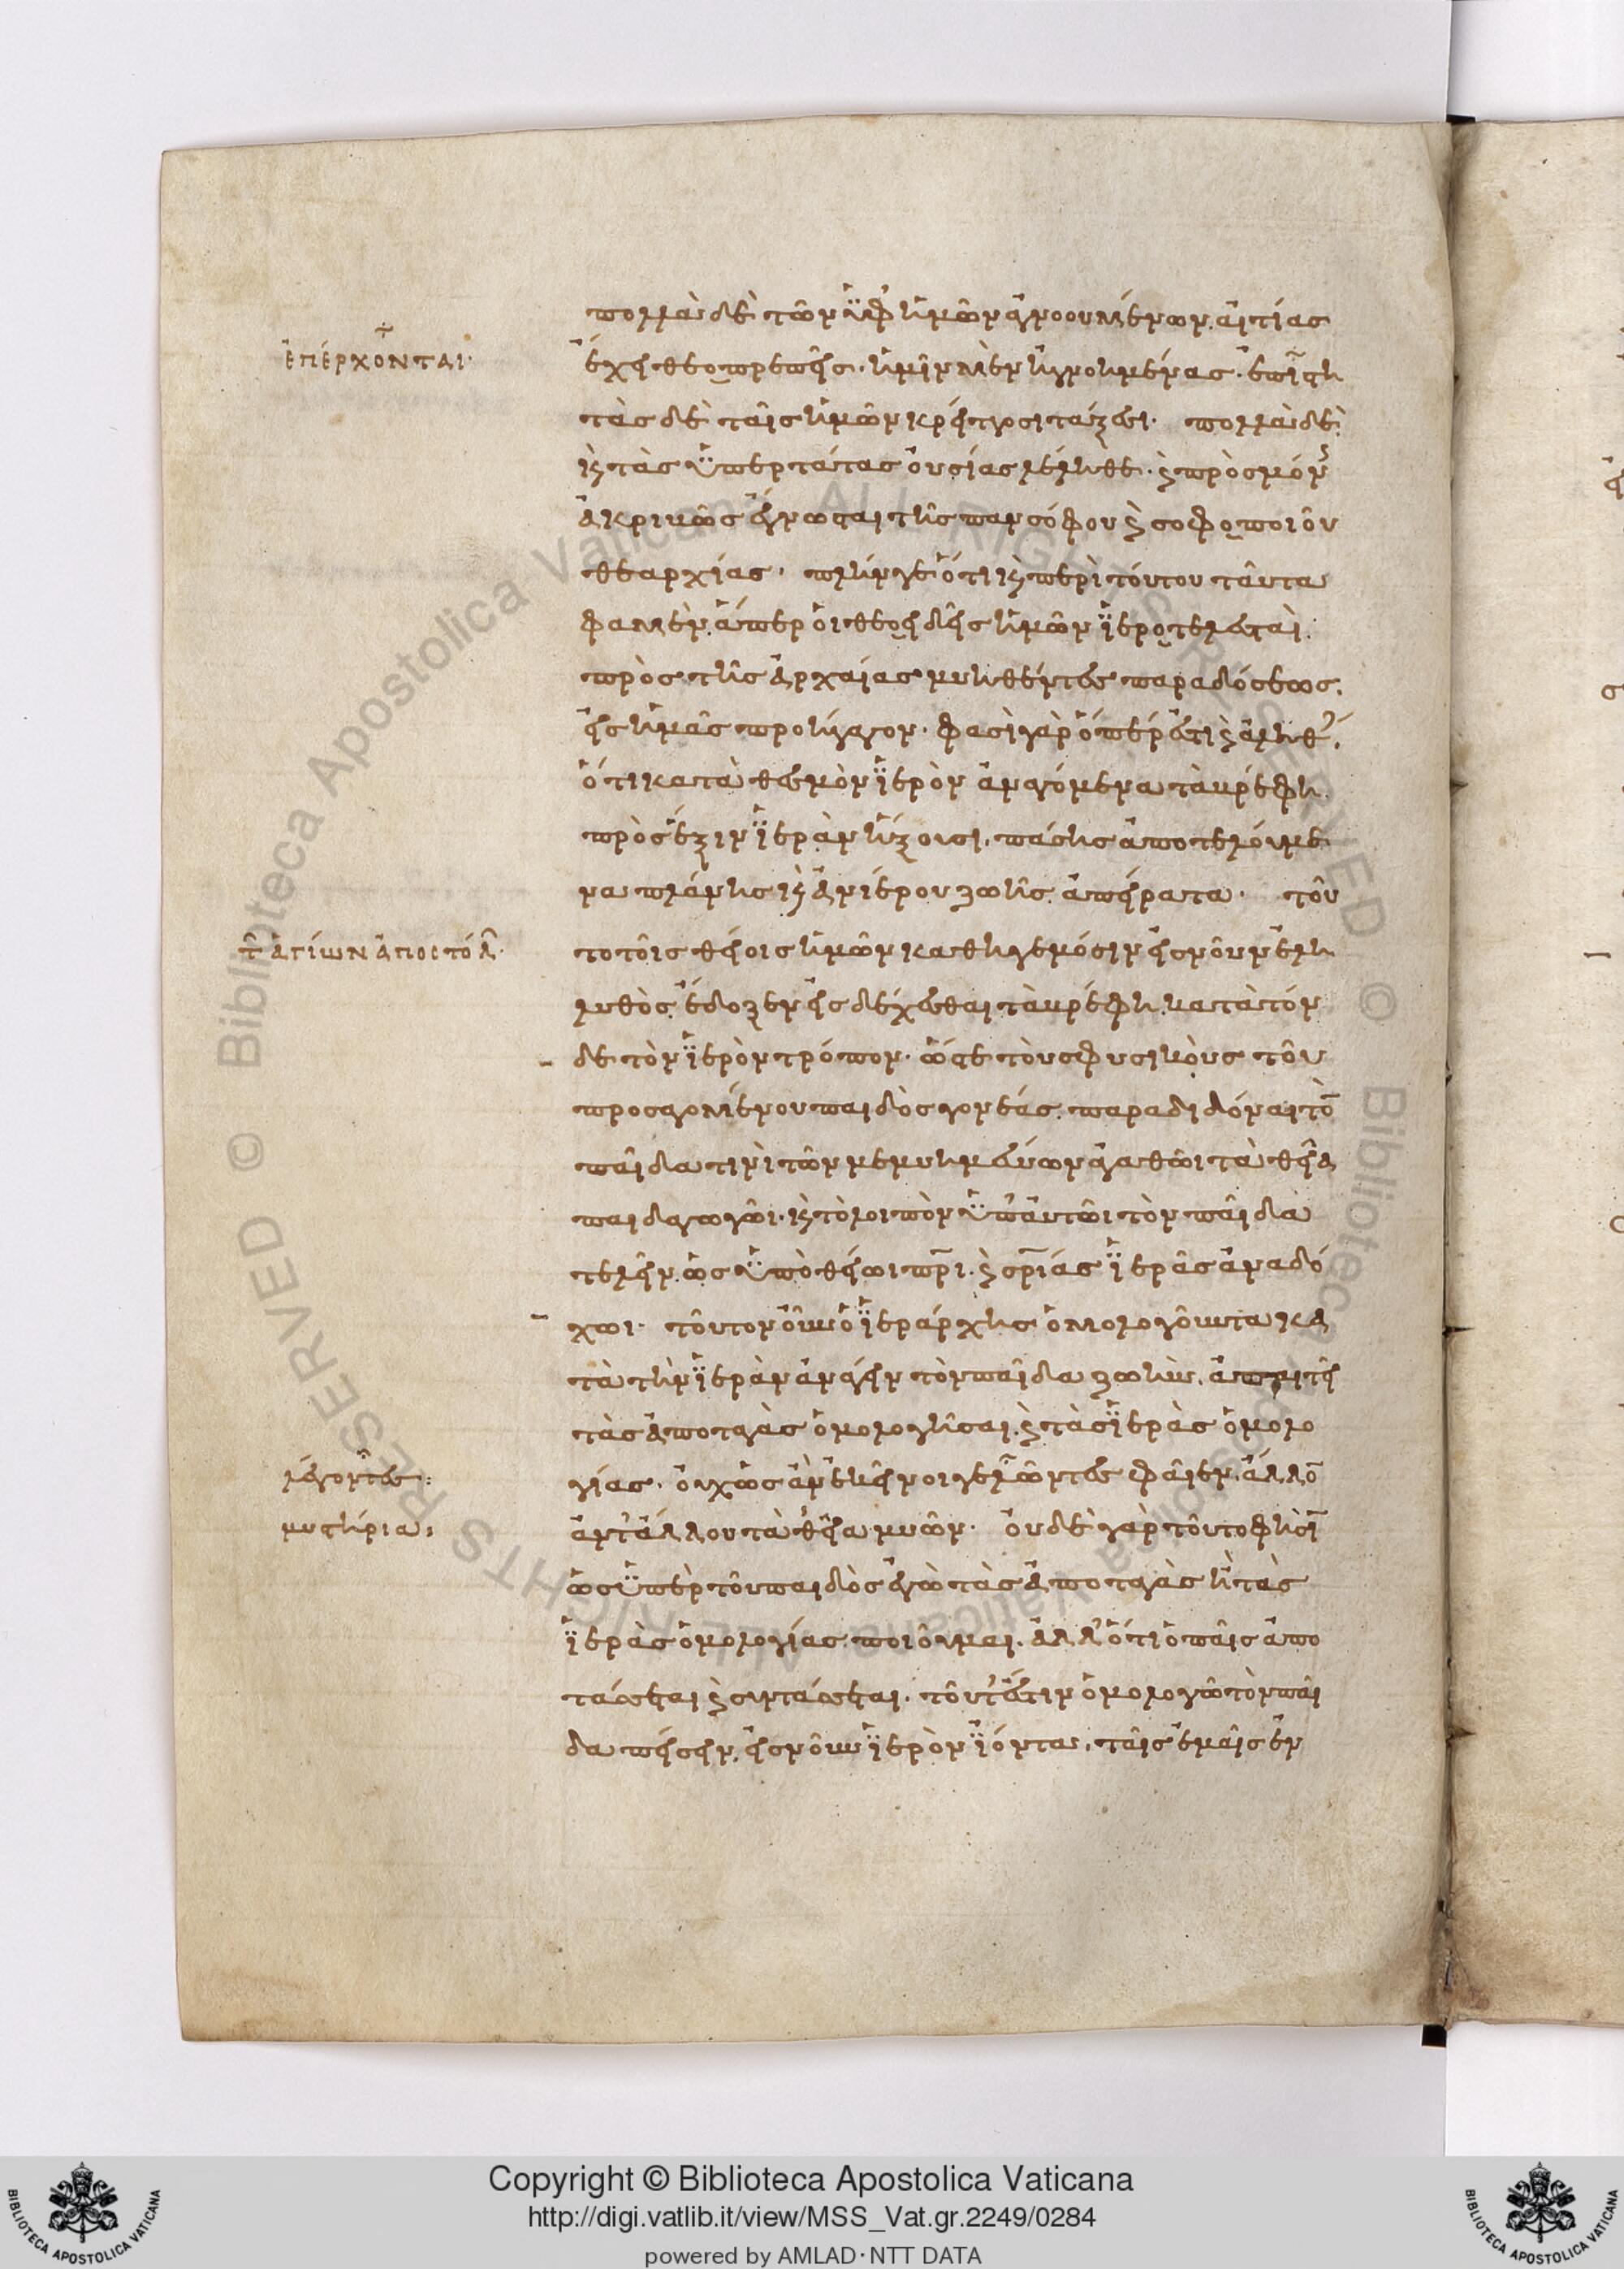 πολλὰ δὲ τῶν ὑφ' ἡμῶν ἀγνοουμένων, αἰτίας
ἐπέρχονται·
ἔχει θεοπρεπεῖς· ἡμῖν μὲν ἠγνοημένας· ἐπιστη
τὰς δὲ ταῖς ἡμῶν κρείττοσι τάξεσι· πολλὰ δὲ
καὶ τὰς ὑπερτάτας οὐσίας λέληθε· καὶ πρὸς μόν
ἀκριβῶς ἔγνωσται τῆς πανσόφου καὶ σοφοποιοῦ
θεαρχίας· πλήν γε ὅτι καὶ περὶ τούτου ταῦτα
φαμὲν, ἅπερ οἱ θεοειδεῖς ἡμῶν ἱεροτελεσταὶ
πρὸς τῆς ἀρχαίας μυηθέντες παραδόσεως,
εἰς ἡμᾶς προήγαγον· φασὶ γὰρ ὅπερ ἐστὶ καὶ ἀληθ,
ὅτι κατὰ θεσμὸν ἱερὸν ἀναγόμενα τὰ βρέφη
πρὸς ἕξιν ἱερὰν ἥξουσι, πάσης ἀποτελούμε
να πλάνης καὶ ἀνιέρου ζωῆς ἀπείρατα· τοῦ
τ ἁγίων ἀποστόλ·
το τοῖς θείοις ἡμῶν καθηγεμόσιν εἰς νοῦν ἐλη
λυθὸς ἔδοξεν εἰσδέχεσθαι τὰ βρέφη κατὰ τόν
δε τὸν ἱερὸν τρόπον· ὥστε τοὺς φυσικοὺς τοῦ
προσαγομένου παιδὸς γονέας παραδιδόναι τὸ
παῖδα τινὶ τῶν μεμυημένων ἀγαθῶι τὰ θεῖα
παιδαγωγῶι· καὶ τὸ λοιπὸν ὑπ' αὐτῶι τὸν παῖδα
τελεῖν ὡς ὑπὸ θείωι πρι· καὶ σρίας ἱερᾶς ἀναδό
χωι· τοῦτον οὖν ὁ ἱεράρχης ὁμολογοῦντα κα
τὰ τὴν ἱερὰν ἀνάγειν τὸν παῖδα ζωὴν, ἀπαιτεῖ
τὰς ἀποταγὰς ὁμολογῆσαι καὶ τὰς ἱερὰς ὁμολο
λέγοντες:
γίας· οὐχ ὡς ἂν ἐκεῖνοι γελῶντες φαῖεν, ἄλλο
μυστήρια:
ἀντ' ἄλλου τὰ θεῖα μυῶν· οὐδὲ γὰρ τοῦτο φησὶ
ὡς ὑπὲρ τοῦ παιδὸς ἐγὼ τὰς ἀποταγὰς ἢ τὰς
ἱερὰς ὁμολογίας ποιοῦμαι, ἀλλ' ὅτι ὁ παῖς ἀπο
τάσσεται καὶ συντάσσεται· τοῦτ' ἔστιν ὁμολογῶ τὸν παῖ
δα πείσειν, εἰς νοῦν ἱερὸν ἰόντα, ταῖς ἐμαῖς ἐν
Copyright © Biblioteca Apostolica Vaticana
http://digi.vatlib.it/view/MSS_Vat.gr.2249/0284
powered by AMLAD·NTT DATA